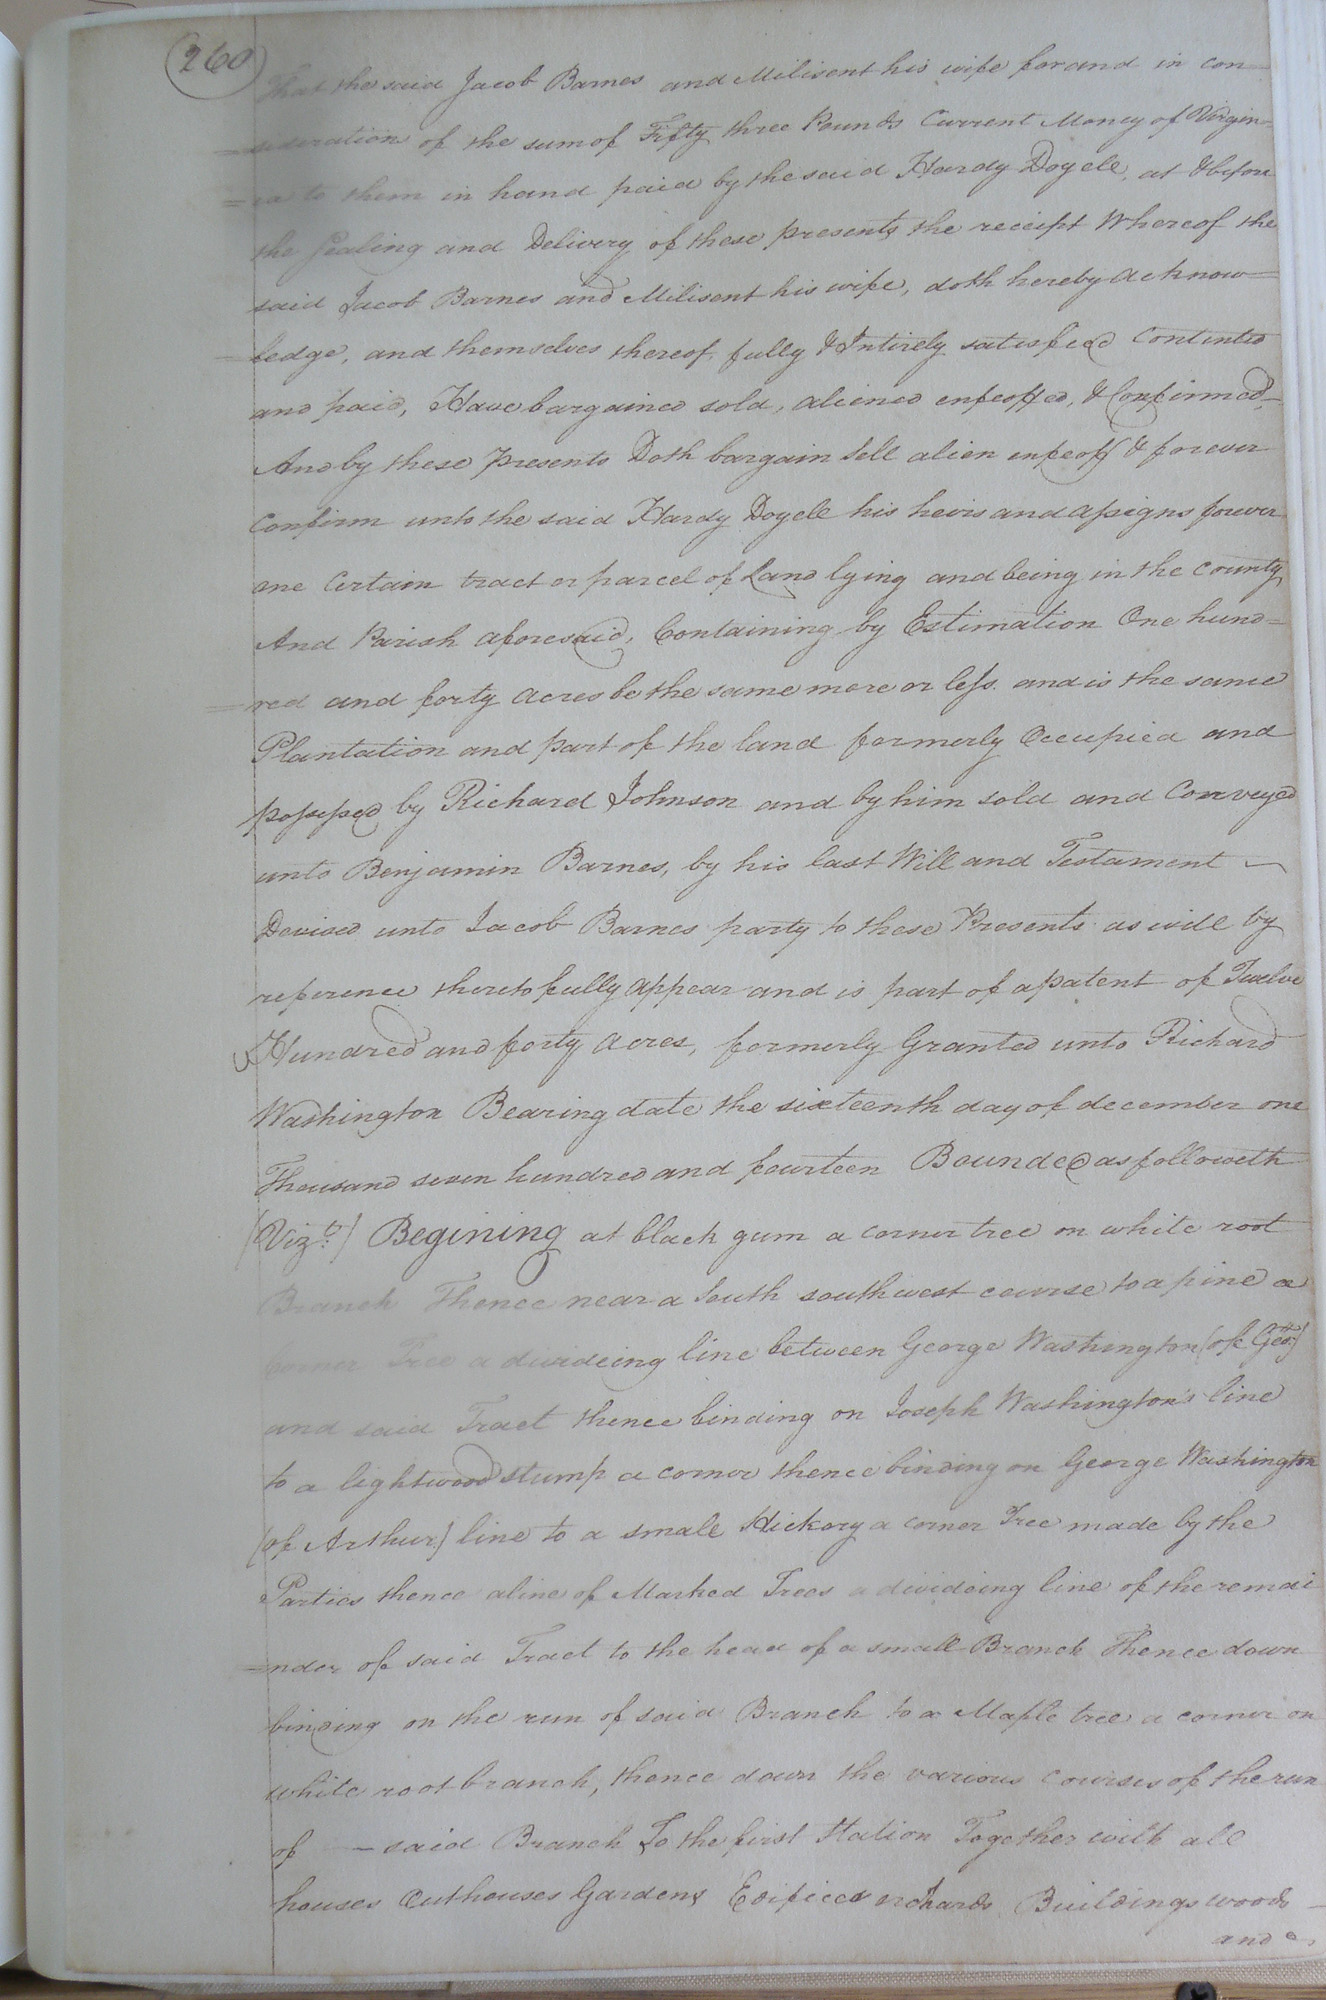 260
That the said Jacob Barnes and Milisent his wife for and in con=
=sideration of the sum of Fifty three Pounds Current Money of Virgin=
=ia to them in hand paid by the said Hardy Doyele, at & before
the Sealing and Delivery of these presents the receipt Whereof the
said Jacob Barnes and Milisent his wife, doth hereby Acknow=
=ledge, and themselves thereof, fully & Intirely satisfied Contented
and paid, Have bargained sold, aliened enfeoffed, & Confirmed,
And by these Presents Doth bargain Sell alien enfeoff & forever
Confirm unto the said Hardy Doyele his heirs and assigns forever
one Certain tract or parcel of Land lying and being in the County
And Parish aforesaid, Containing by Estimation One hund=
=red and forty acres be the same more or less. and is the same
Plantation and part of the land formerly Occupied and
possessed by Richard Johnson and by him sold and Conveyed
unto Benjamin Barnes, by his last Will and Testament
Devised unto Jacob Barnes party to these Presents as will by
reference thereto fully appear and is part of a patent of Twelve
Hundred and forty acres, formerly Granted unto Richard
Washington Bearing date the sixteenth day of december one
Thousand seven hundred and fourteen Bounded as followeth
(Vizt.) Begining at black gum a corner tree on white root
Branch Thence near a South southwest course to a pine a
corner Tree a divideing line between George Washington (of Geo:)
and said Tract thence binding on Joseph Washington's line
to a lightwood stump a corner thence binding on George Washington
(of Arthur) line to a small Hickory a corner Tree made by the
Parties thence a line of Marked Trees a divideing line of the remai
=nder of said Tract to the head of a small Branch Thence down
binding on the run of said Branch to a Maple tree a corner on
white root branch, thence down the various courses of the run
of — said Branch To the first Station Together with all
houses Outhouses Gardens Edifices orchards Buildings woods
and